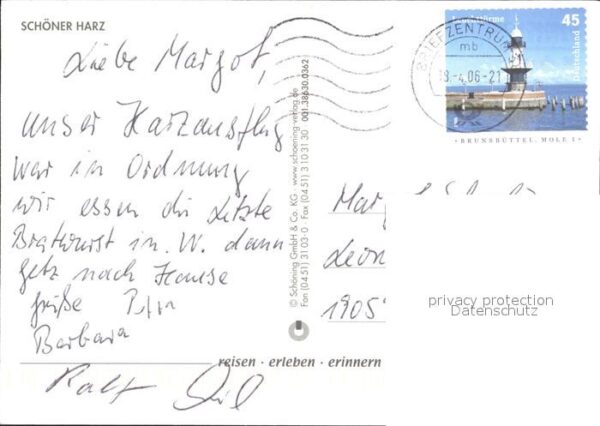 SCHÖNER HARZ
Liebe Margot,
unser Harzausflug
war in Ordnung
wir essen die Letzte
Bratwurst in. W. dann
getz nach Hause
Grüße
Barbara
Ralf
reisen · erleben · erinnern
© Schöning GmbH & Co. KG · www.schoening-verlag.de
Fon (04 51) 31 03-0 · Fax (04 51) 3 10 31 30 · 001.38630.0362
Leuchttürme
45
Deutschland
BRIEFZENTRUM
mb
.-4.06-21
BRUNSBÜTTEL, MOLE 1
Mar
Leon
1905
privacy protection
Datenschutz